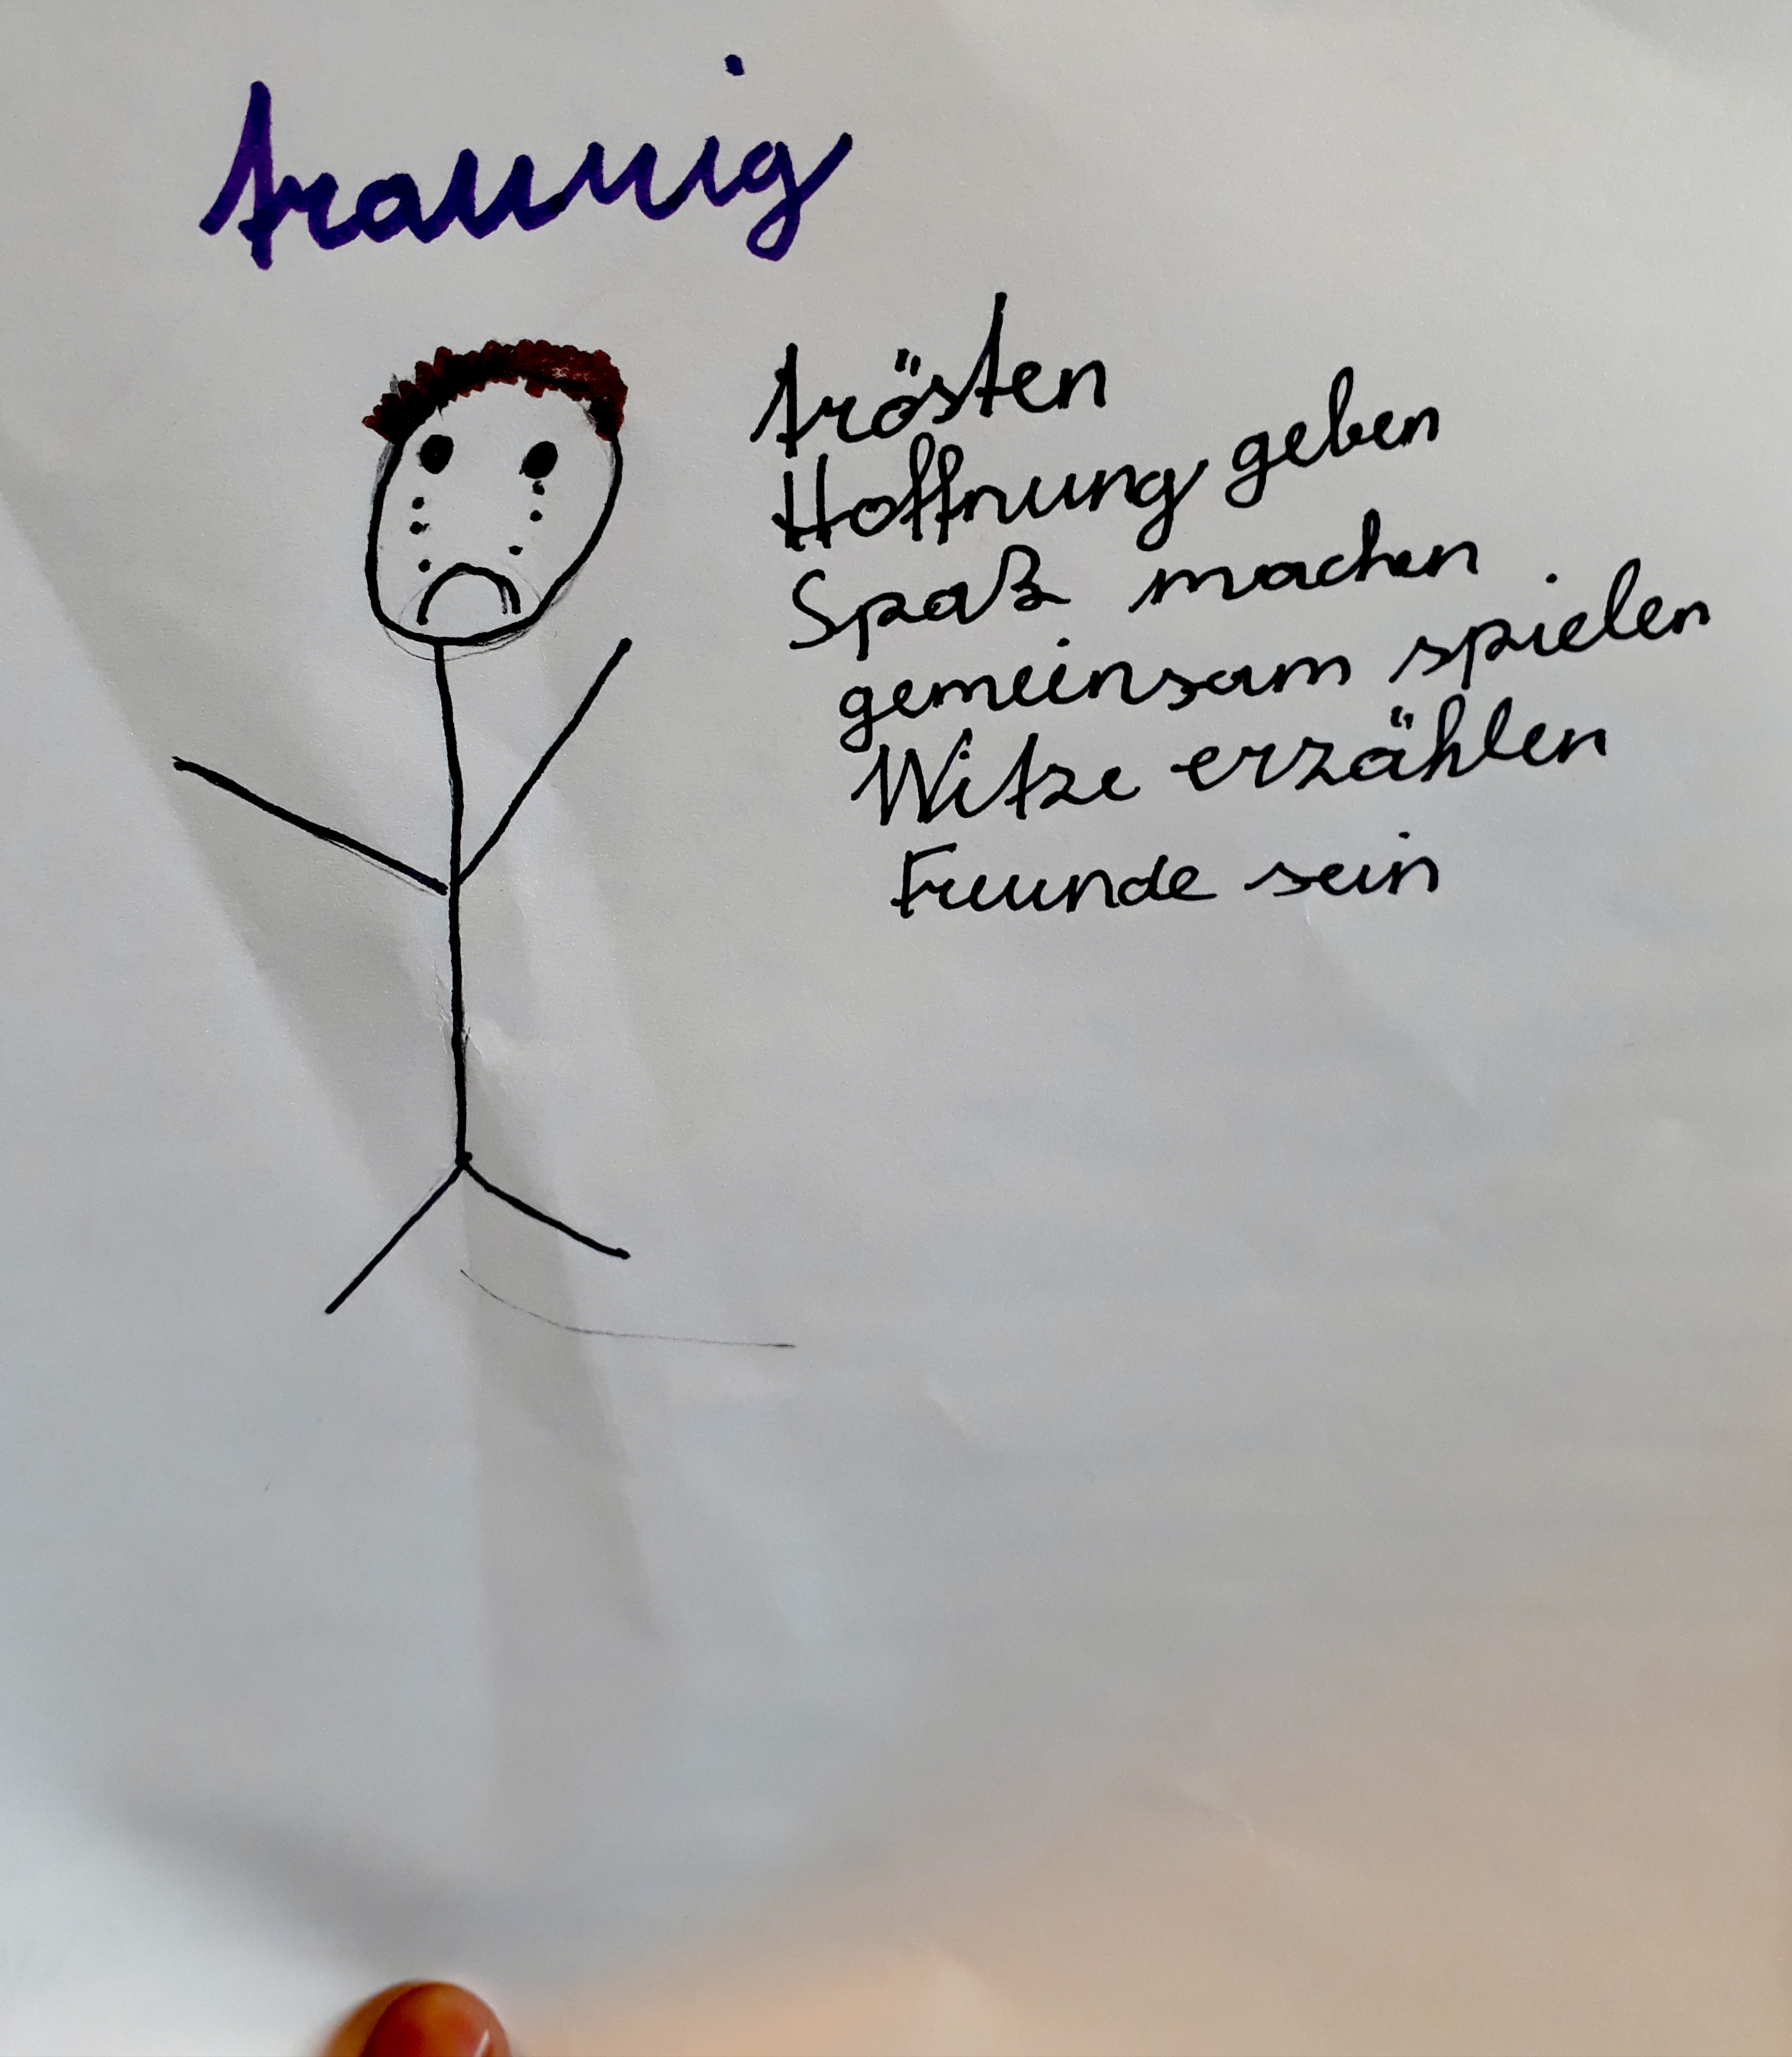 traurig
trösten
Hoffnung geben
Spaß machen
gemeinsam spielen
Witze erzählen
Freunde sein